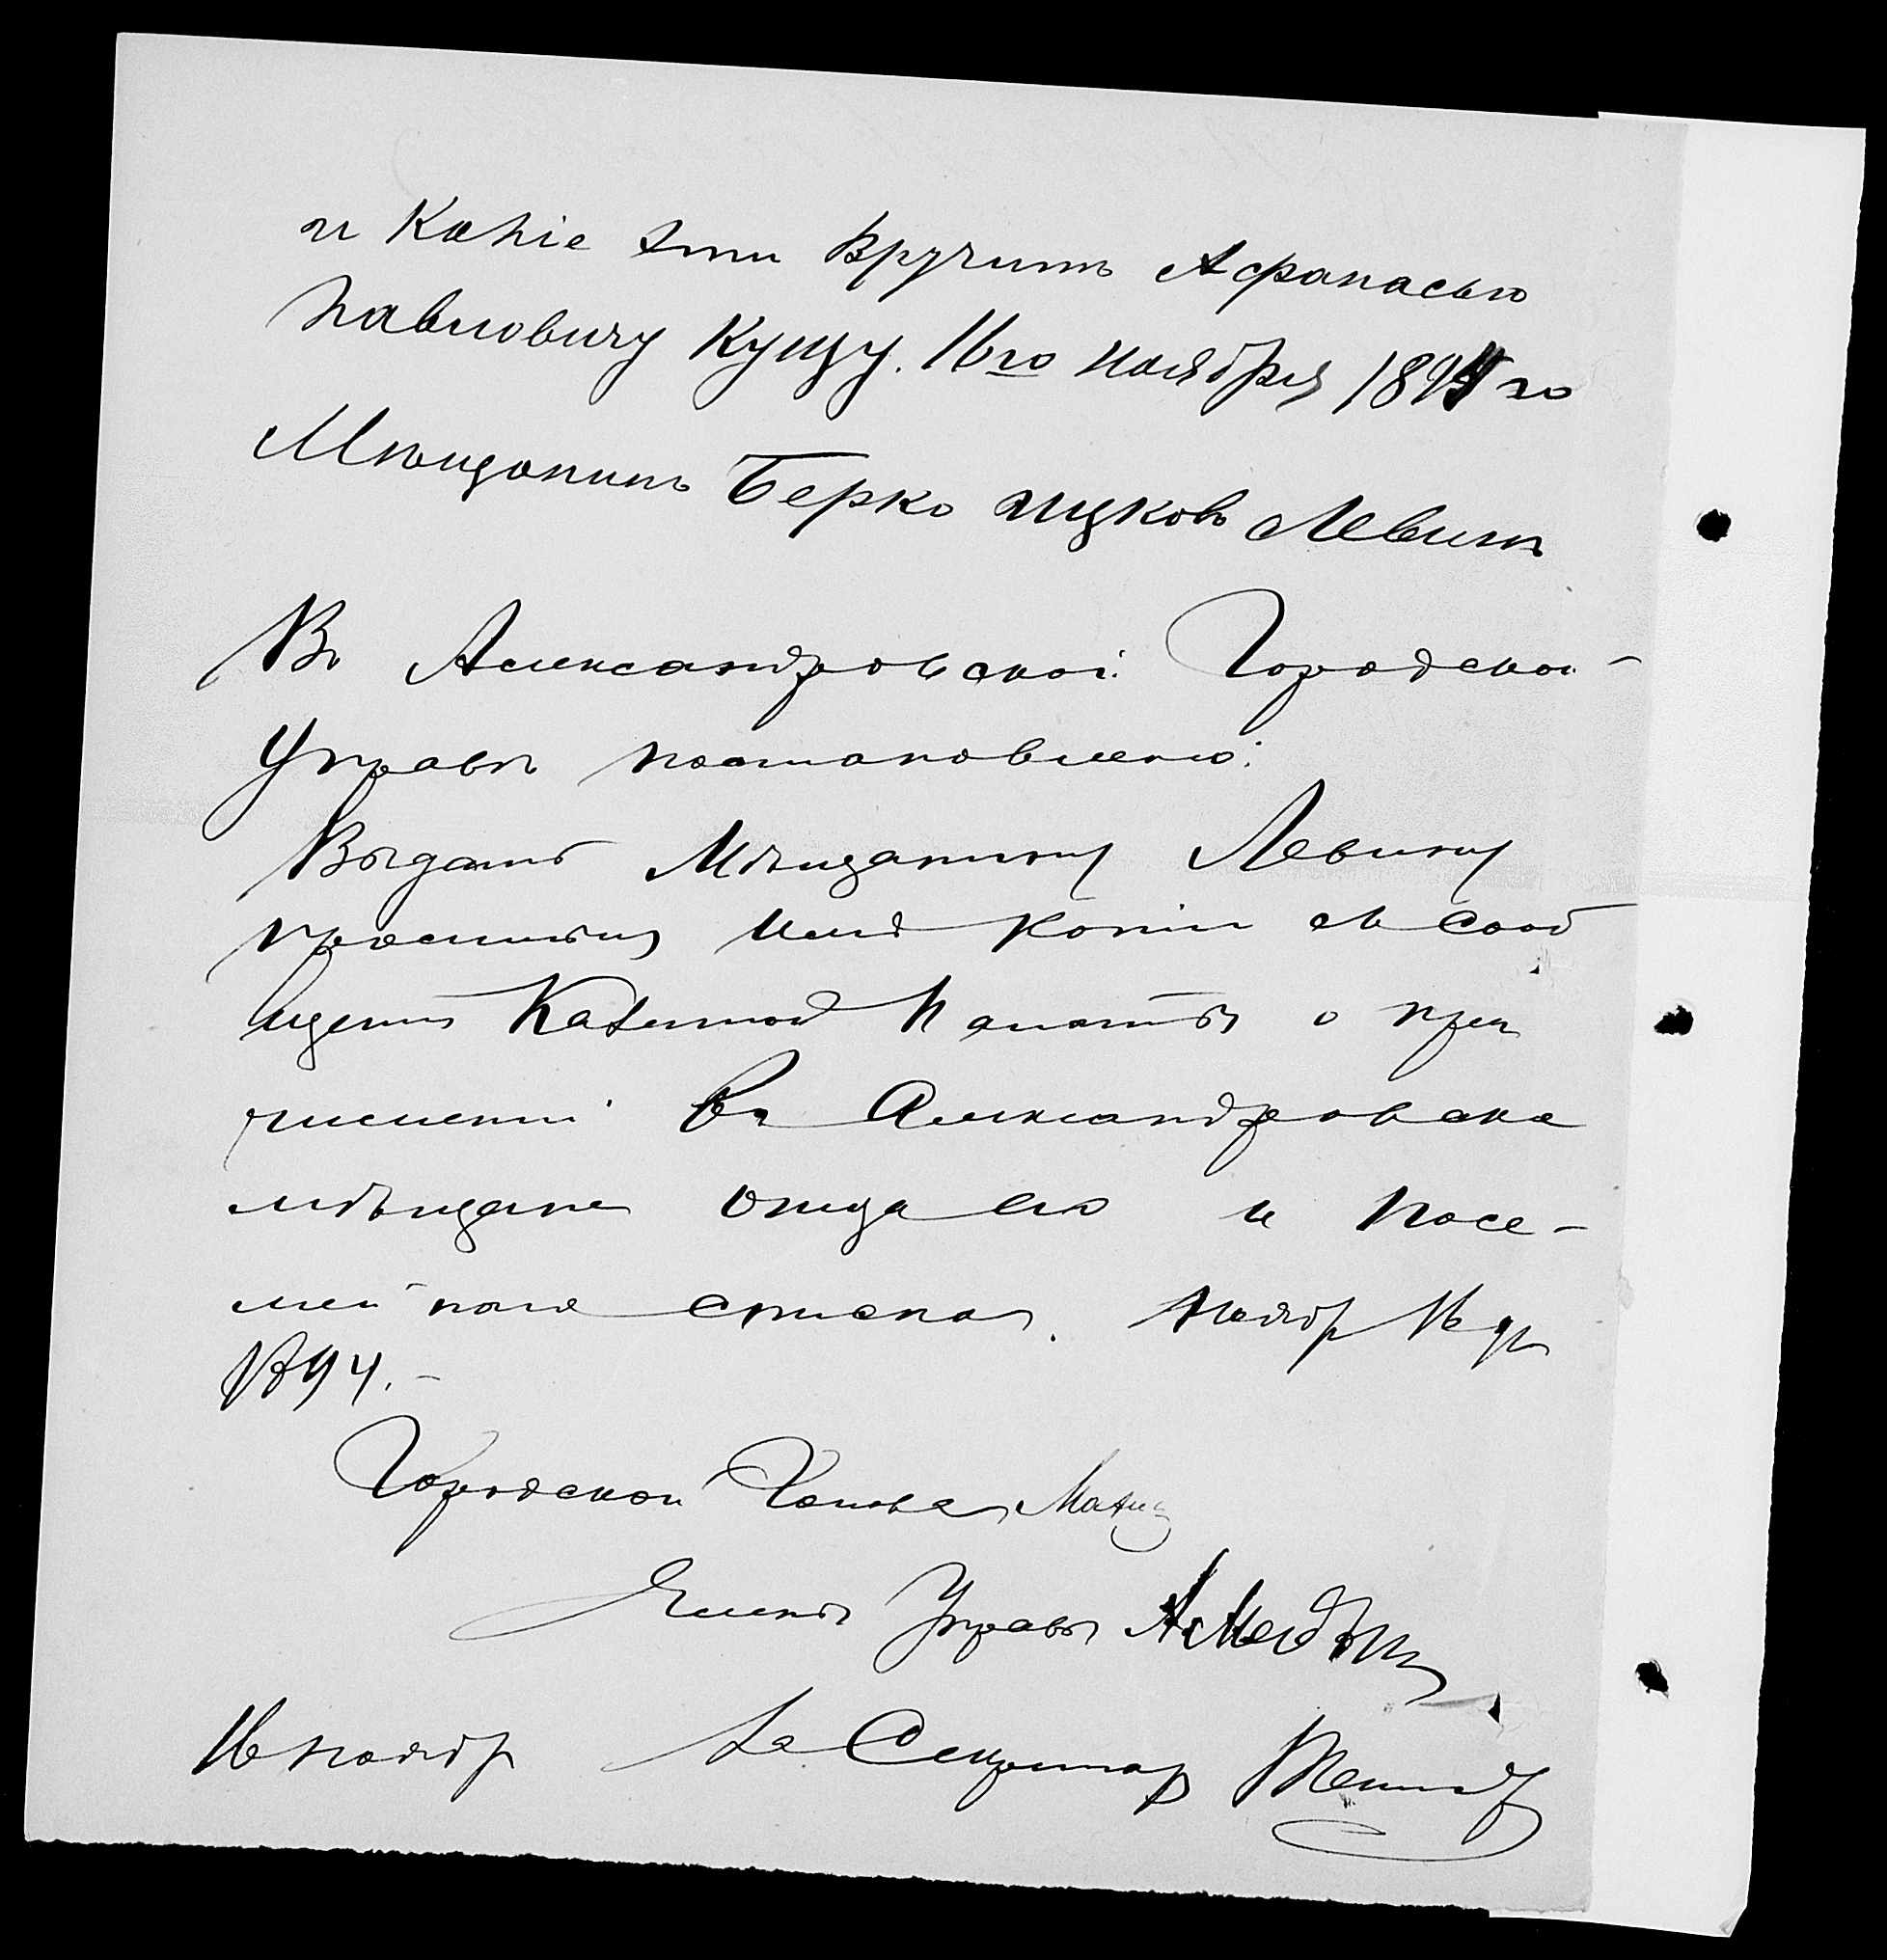 и Копіе эти вручить Афанасью
Павловичу Кущу. 16го ноября 1894 го
Мѣщанинъ Берко Ицковъ Левинъ
Въ Александровской Городской
Управѣ постановлено:
Выдать Мѣщанину Левину
просимыя имъ копіи съ сооб
щенія Казенной Палаты о при
численіи въ Александровскіе
мѣщане отца его и посе-
мейнаго списка. Ноябр 16 дн
1894.-
Городской Голова
Членъ Управы
16 ноябр За Секретар